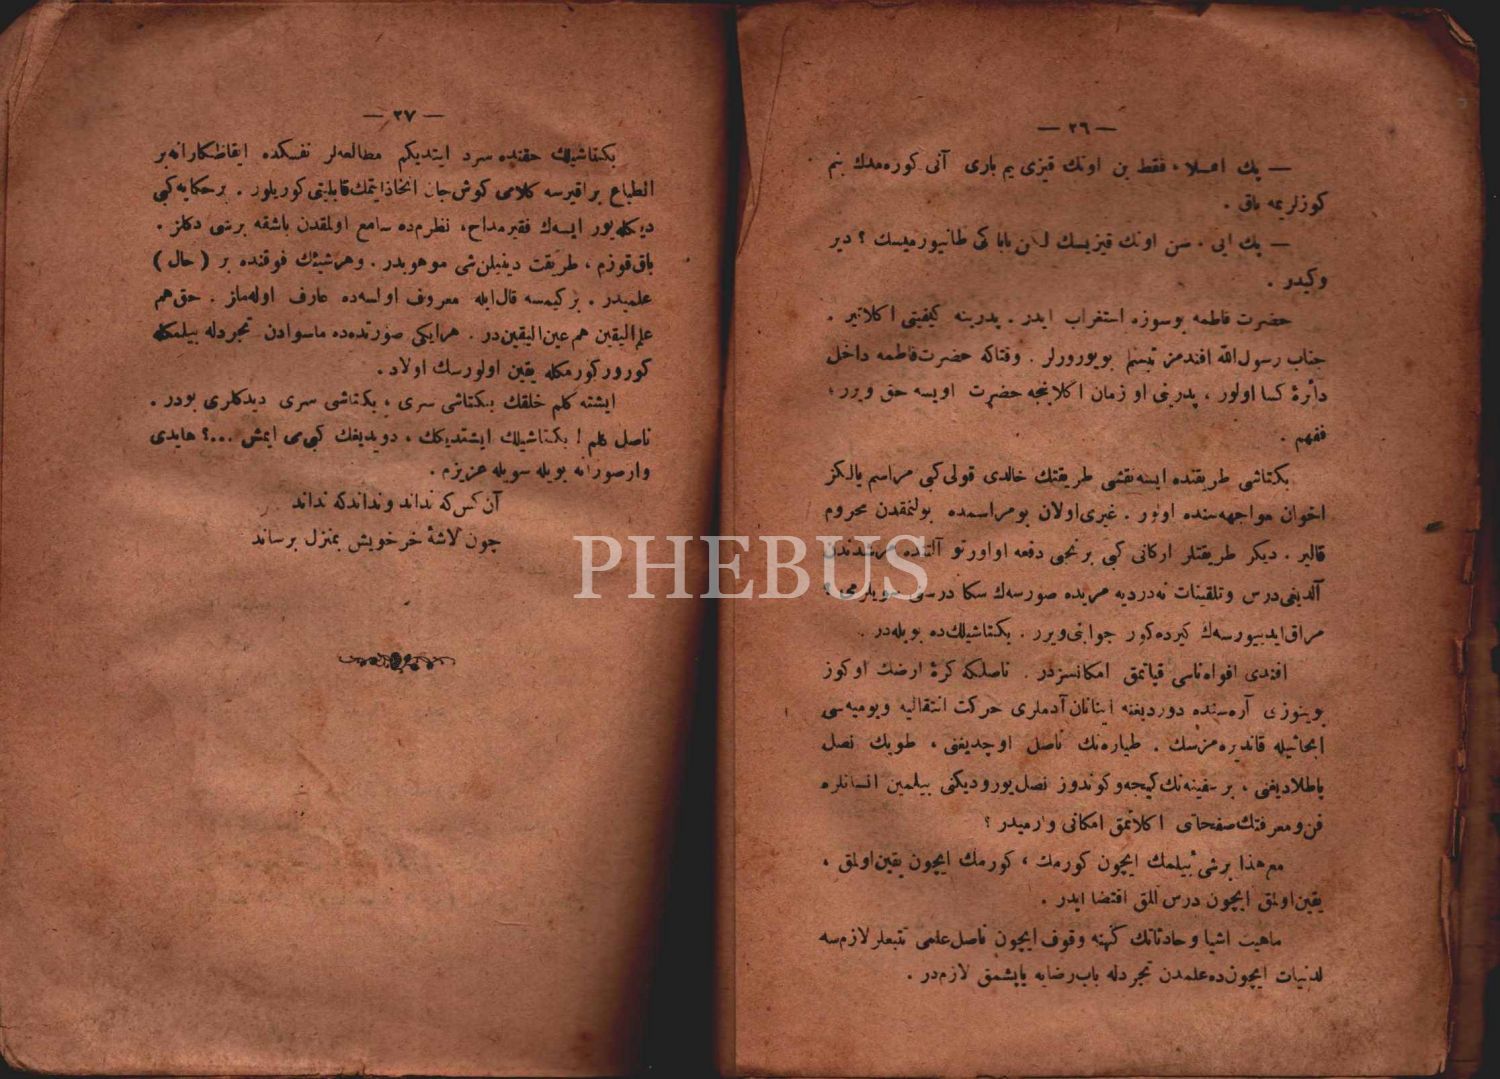 — ٢٦ —
— پك اعلا ، فقط بن اونك قیزی یم باری آنی كوره‌مدك بنم
كوزلریمه باق .
— پك ایی . سن اونك قیزیسك لكن بابا كی طانیورمیسك ؟ دیر
وكیدر .
حضرت فاطمه بوسوزه استغراب ایدر . پدرینه كیفیتی اكلاتیر .
جناب رسول الله افندمز تبسم بویورورلر . وقتاكه حضرت فاطمه داخل
دائرهٔ كسا اولور ، پدرینی او زمان اكلاینجه حضرت اویسه حق ویرر ؛
فهم .
بكتاشی طریقنده ایسه نقشی طریقتك خالدی قولی كبی مراسم یالكز
اخوان مواجهه‌سنده اولور . غیری اولان بومراسمده بولنمقدن محروم
قالیر . دیكر طریقتلر اركانی كبی برنجی دفعه اواورتو آلتنده مرشدندن
آلدیغی درس وتلقینات نه‌دردیه مریده صورسه‌ك سكا درسنی سویلرمی ؟
مراق ایدییورسه‌ك كیرده‌كور جوابنی ویرر . بكتاشیلك‌ده بویله‌در .
افندی افواه ناسی قپاتمق امكانسزدر . ناصلكه كرهٔ ارضك اوكوز
بوینوزی آره‌سنده دوردیغنه اینانان آدملری حركت انتقالیه ویومیه‌سی
ابحاثیله قاندیره‌مزسك . طیاره‌نك ناصل اوچدیغنی ، طوپك نصل
پاطلادیغنی ، برسفینه‌نك كیجه‌وكوندوز نصل‌یورودیكنی بیلمین انسانلره
فن‌ومعرفتك صفحاتی اكلاتمق امكانی وارمیدر ؟
مع‌هذا برشی بیلمك ایچون كورمك ، كورمك ایچون یقین‌اولمق ،
یقین‌اولمق ایچون درس آلمق اقتضا ایدر .
ماهیت اشیا وحادثاتك كنهنه وقوف ایچون ناصل‌علمی تتبعلر لازم‌سه
لدنیات ایچون‌ده‌علمدن تجردله باب‌رضایه یاپشمق لازم‌در .
— ٢٧ —
بكتاشیلك حقنده سرد ایتدیكم مطالعه‌لر نفسكده ایقاظكارانه‌بر
انطباع براقیرسه كلامی كوش‌جان اتخاذایتمك‌قابلیتی‌كوریلور . برحكایه‌كبی
دیكله‌یور ایسه‌ك فقیرمداح، نظرم‌ده سامع اولمقدن باشقه برشی دكلز .
باق‌قوزم ، طریقت دینیلن‌شی موهوبدر . وهرشیئك فوقنده بر ( حال )
علمیدر . بركیمسه قال‌ایله معروف اولسه‌ده عارف اوله‌ماز . حق‌هم
علم‌الیقین هم‌عین‌الیقین‌در . هرایكی صورتده‌ده ماسوادن تجردله بیلمكله
كورور كورمكله یقین اولورسك اولاد .
ایشته كلم خلقك بكتاشی سری ، بكتاشی سری دیدكلری بودر .
ناصل كلم ! بكتاشیلك ایشتدیكك ، دویدیغك كبی‌می ایمش ...؟ هایدی
وارصورانه بویله سویله عزیزم .
آن كس كه نداند ونداندكه نداند
چون لاشهٔ خرخویش بمنزل برساند
PHEBUS